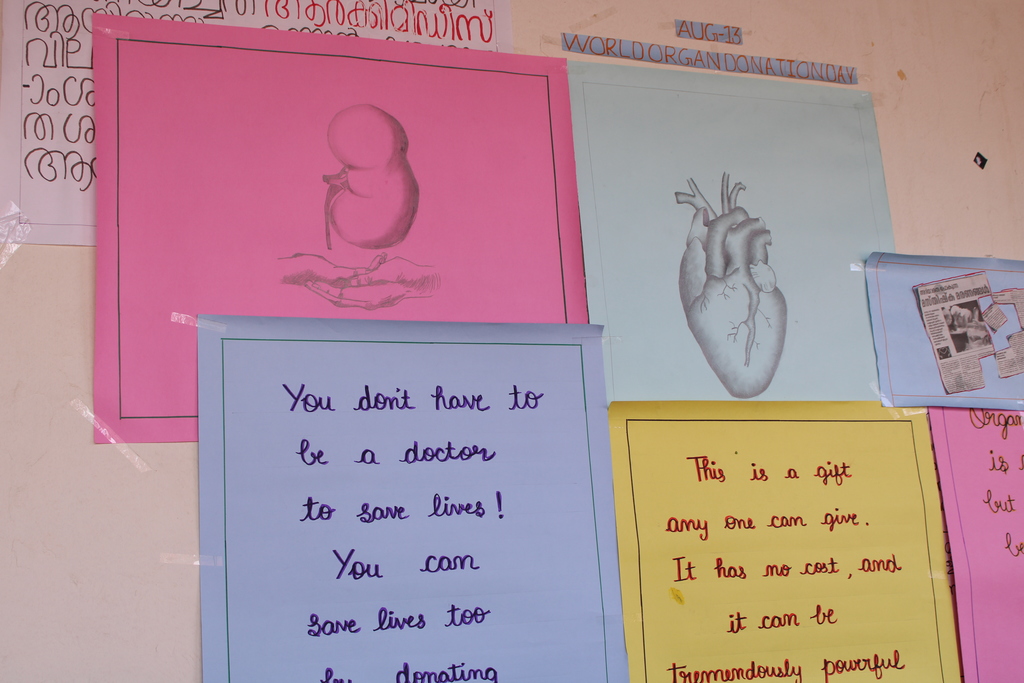 ആർക്കിമിഡീസ്
വില
-ാംശ
ത ശ
AUG-13
WORLD ORGAN DONATION DAY
You don't have to
be a doctor
to save lives!
You can
save lives too
by donating
This is a gift
any one can give.
It has no cost, and
it can be
tremendously powerful
Organ
is
but
be